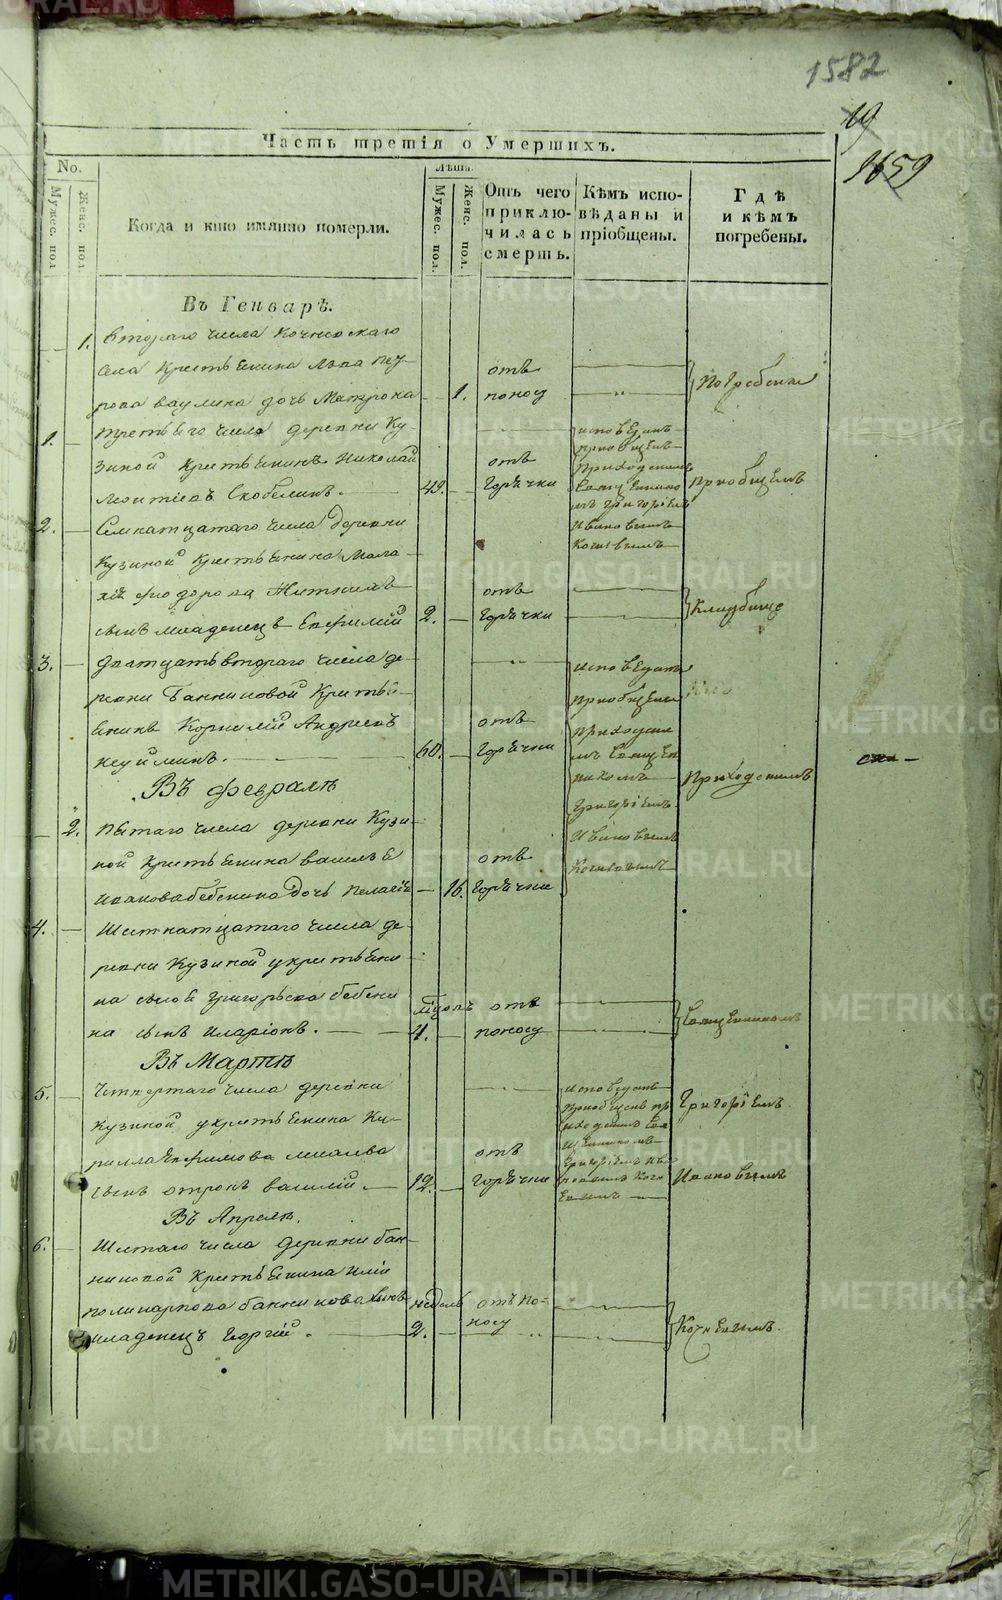 1582
19
1659
Часть третія о Умершихъ.
No.
Мужес. пол
Женс. пол.
Когда и кто имянно померли.
Лѣта.
Мужес. пол.
Женс. пол.
Отъ чего приклю-
чилась
смерть.
Кѣмъ испо-
вѣданы и
пріобщены.
Гдѣ
и кѣмъ
погребены.
Въ Генварѣ.
1. втораго числа Кочневскаго
села Крестьянина Льва Пет-
рова Ваулина дочь Матрона
1.
отъ
поносу
Погребены
1. третьяго числа деревни Ку-
зиной Крестьянинъ Николай
Леонтьевъ Скобелинъ.
49.
отъ
горячки
исповѣданъ
приобщенъ
приходскимъ
Священнико
мъ Григоріемъ
Ивановымъ
Кочневымъ
приобщемъ
2. Семнатцатаго числа деревни
Кузиной Крестьянина Мала
хія Федорова
сынъ младенецъ Ефимій
2.
отъ
горячки
Кладбище
3. Двадцать втораго числа де-
ревни Банниковой Кресть-
янинъ Корнилій Андреевъ
Неуйминъ.
60.
отъ
горячки
исповѣданъ
приобщенъ
приходски
мъ Священ
никомъ
Григоріемъ
Ивановымъ
Кочневымъ
Приходскимъ
Въ Февралѣ
2. пятаго числа деревни Кузи-
ной Крестьянина Василья
Иванова Бабенина дочь Пелагія
16.
отъ
горячки
4. Шестнатцатаго числа де-
ревни Кузиной у крестьяни
на Григорьева Бабени
на сынъ Иларіонъ.
4.
отъ
поносу
Священникомъ
Въ Мартѣ
5. Четвертаго числа деревни
Кузиной у крестьянина Ки-
рилла Ефимова
сынъ отрокъ Василій.
12.
отъ
горячки
исповѣданъ
приобщенъ пр
иходскимъ Свя
щенникомъ
Григоріемъ Ив
ановымъ Кочн
евымъ
Григоріемъ
Ивановымъ
Въ Апрелѣ.
6. Шестаго числа деревни Бан-
никовой Крестьянина Иліи
Поликарпова Банникова сынъ
младенецъ Георгій.
недель
2.
отъ по-
носу
Кочневымъ.
METRIKI.GASO-URAL.RU